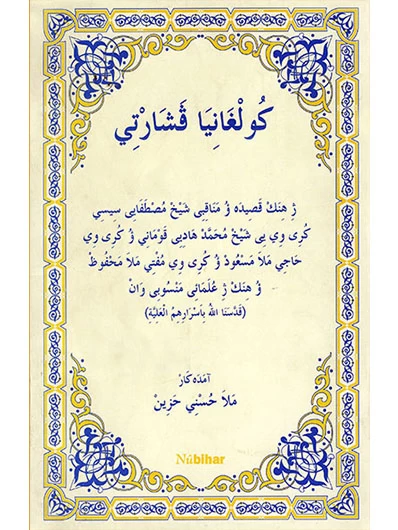 كُولْغَانِيَا ڤَشَارْتِي
ژِ هِنِكْ قَصِيدَه وُ مَنَاقِبِي شَيْخْ مُصْطَفَايِي سِيسِي
كُرِى وِي يِى شَيْخْ مُحَمَّدْ هَادِيِى قَوْمَانِي وُ كُرِى وِي
حَاجِي مَلَا مَسْعُودْ وُ كُرِى وِي مُفْتِي مَلَا مَحْفُوظْ
وُ هِنِكْ ژِ عُلَمَائِى مَنْسُوبِى وَانْ
(قَدَّسَنَا اللهُ بِأَسْرَارِهِمُ الْعَلِيَّةِ)
آمَدَه كَارْ
مَلَا حُسْنِي حَزِينْ
Nûbihar